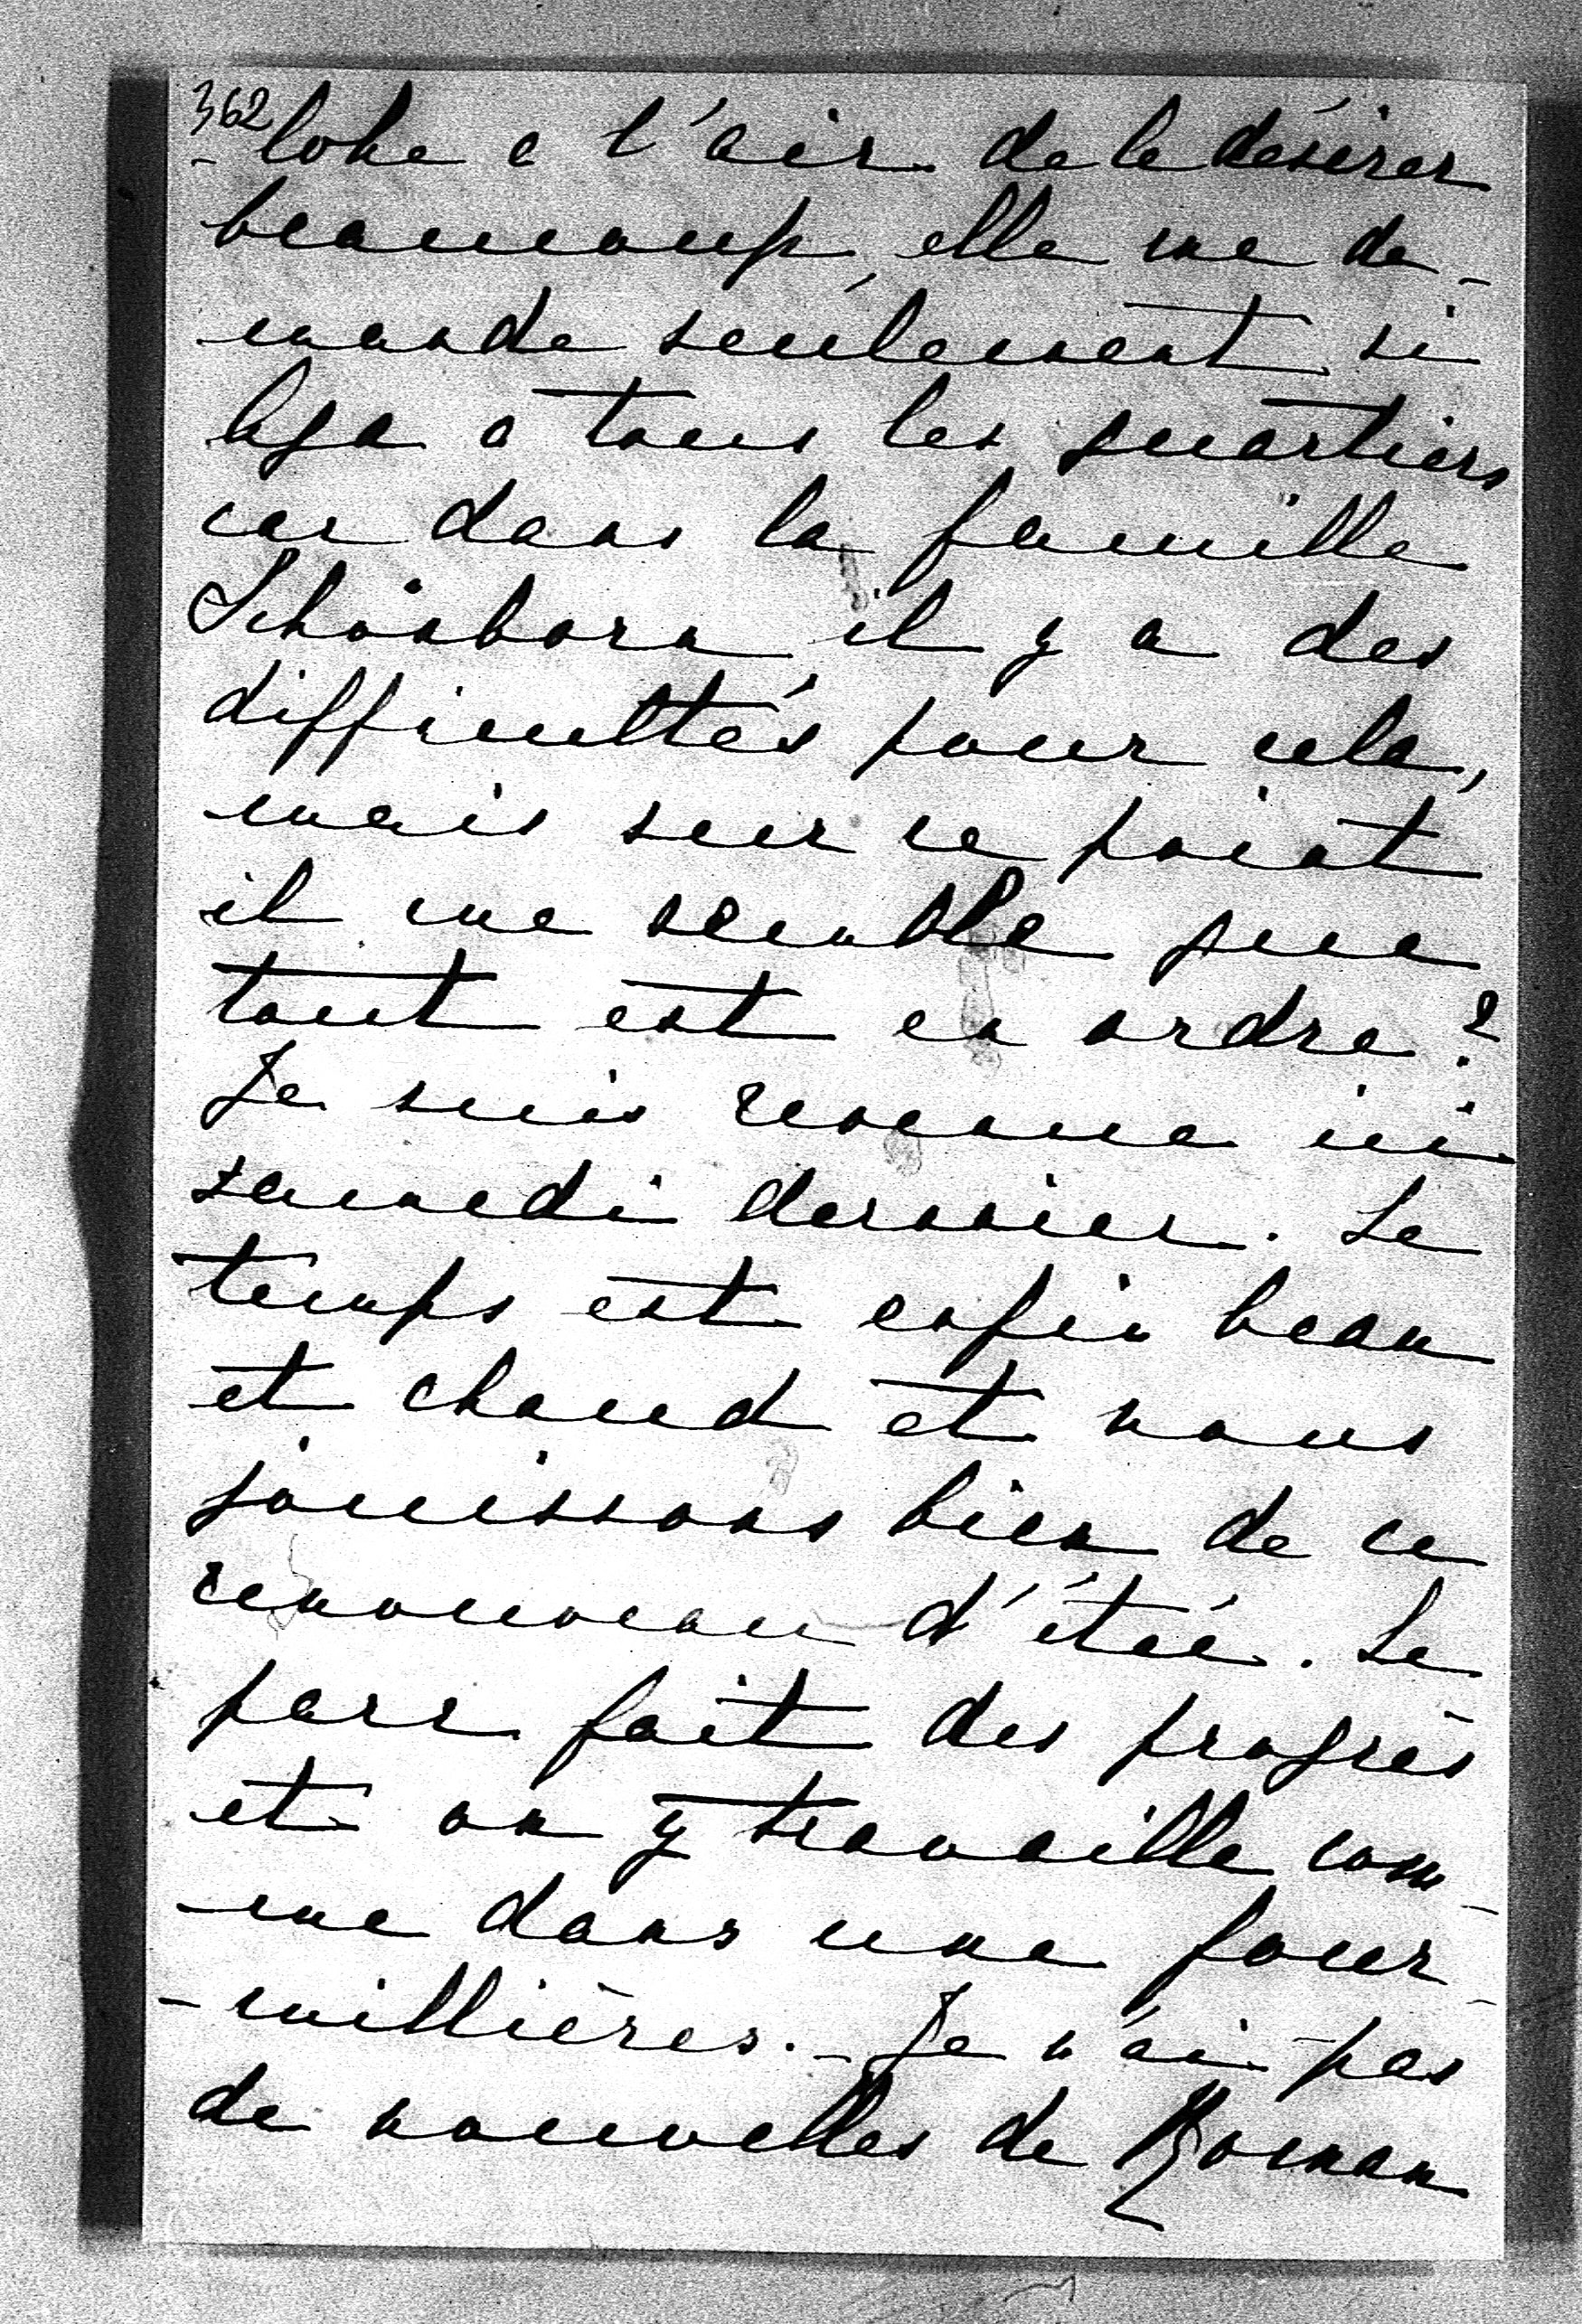 362
- lohe a l'air de le désirer
beaucoup, elle me de-
mande seulement si
a tous les quartiers
car dans la famille
Schönborn, il y a des
difficultés pour cela,
mais sur ce point
il me semble que
tout est en ordre?
Je suis revenue ici
samedi dernier. Le
temps est enfin beau
et chaud et nous
jouissons bien de ce
renouveau d'étée. Le
parc fait des progrès
et on y travaille com-
-me dans une four-
-millières. - Je n'ai pas
de nouvelles de Roman